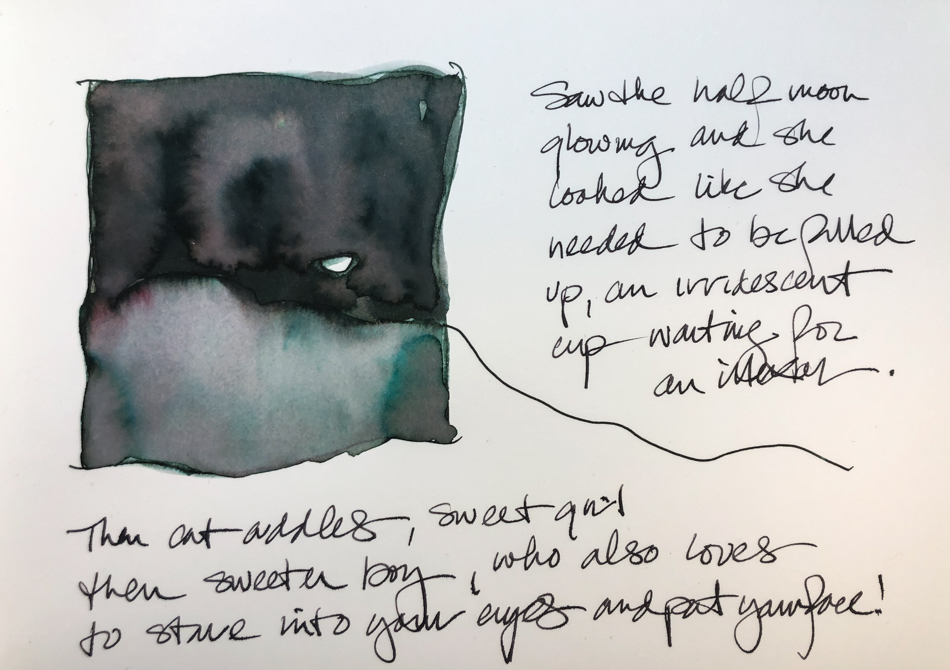 Saw the half moon
glowing and she
looked like she
needed to be filled
up, an irridescent
cup waiting for
an
Then cat cuddles, sweet girl
then sweeter boy, who also loves
to stare into your eyes and pat your face!